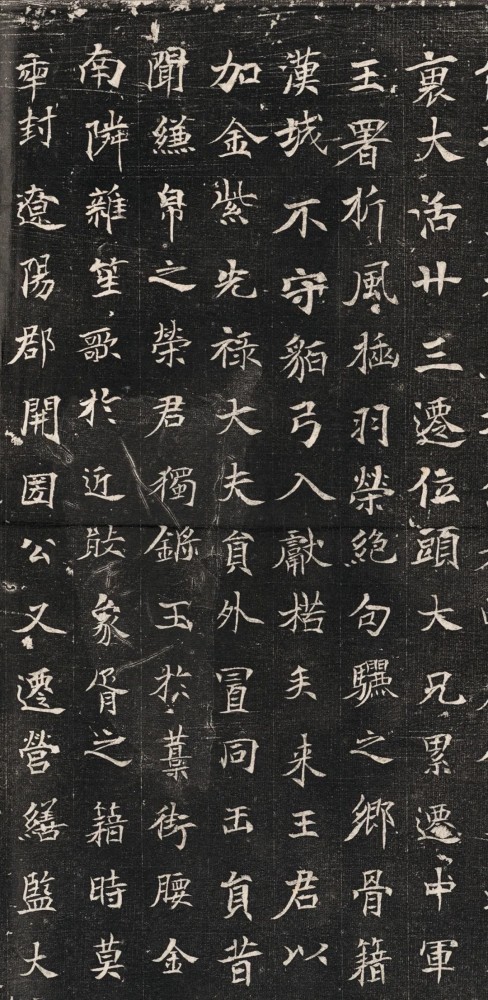 裏大活廿三遷位頭大兄累遷中軍
王署折風插羽榮絕句驪之鄉骨籍
漢城不守貊弓入獻楛矢来王君以
加金紫光祿大夫員外置同正員昔
聞縑帛之榮君獨鏘玉於藁街腰金
南隣雜笙歌於近象胥之籍時莫
年封遼陽郡開圀公又遷營繕監大